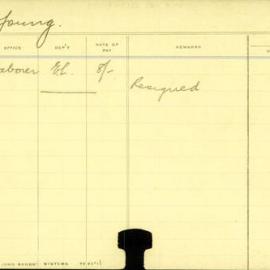 Young.
OFFICE DEP'T RATE OF PAY REMARKS
Laborer EL. 8/-
Resigned